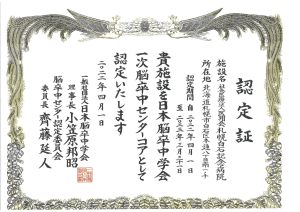 認定証
施設名 札幌白石記念病院
所在地 北海道札幌市白石区本通八丁目南
認定期間 自 年四月一日
至 年三月三十一日
貴施設を日本脳卒中学会
一次脳卒中センターコアとして
認定いたします
年四月一日
一般社団法人日本脳卒中学会
理事長 小笠原邦昭
脳卒中センター認定委員会
委員長 齊藤延人